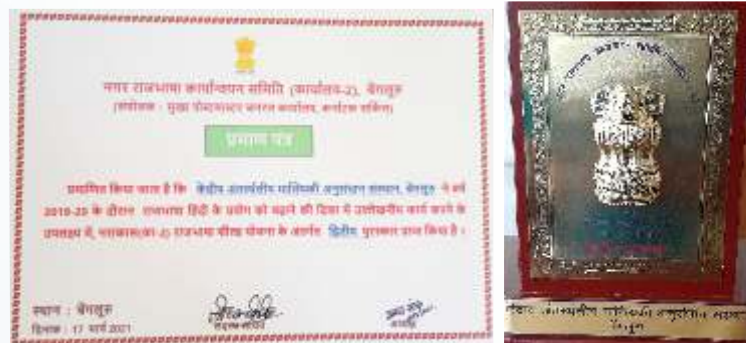 नगर राजभाषा कार्यान्वयन समिति (कार्यालय-2), बेंगलूरु
(संयोजक : मुख्य पोस्टमास्टर जनरल कार्यालय, कर्नाटक सर्किल)
प्रमाण पत्र
प्रमाणित किया जाता है कि केंद्रीय अंतर्स्थलीय मात्स्यिकी अनुसंधान संस्थान, बेंगलूरु ने वर्ष
2019-20 के दौरान राजभाषा हिंदी के प्रयोग को बढ़ाने की दिशा में उल्लेखनीय कार्य करने के
उपलक्ष्य में, नराकास(का-2) राजभाषा शील्ड योजना के अंतर्गत द्वितीय पुरस्कार प्राप्त किया है।
स्थान : बेंगलूरु
सदस्य-सचिव
अध्यक्ष
दिनांक : 17 मार्च 2021
अंतर्स्थलीय मात्स्यिकी अनुसंधान
बेंगलूरु